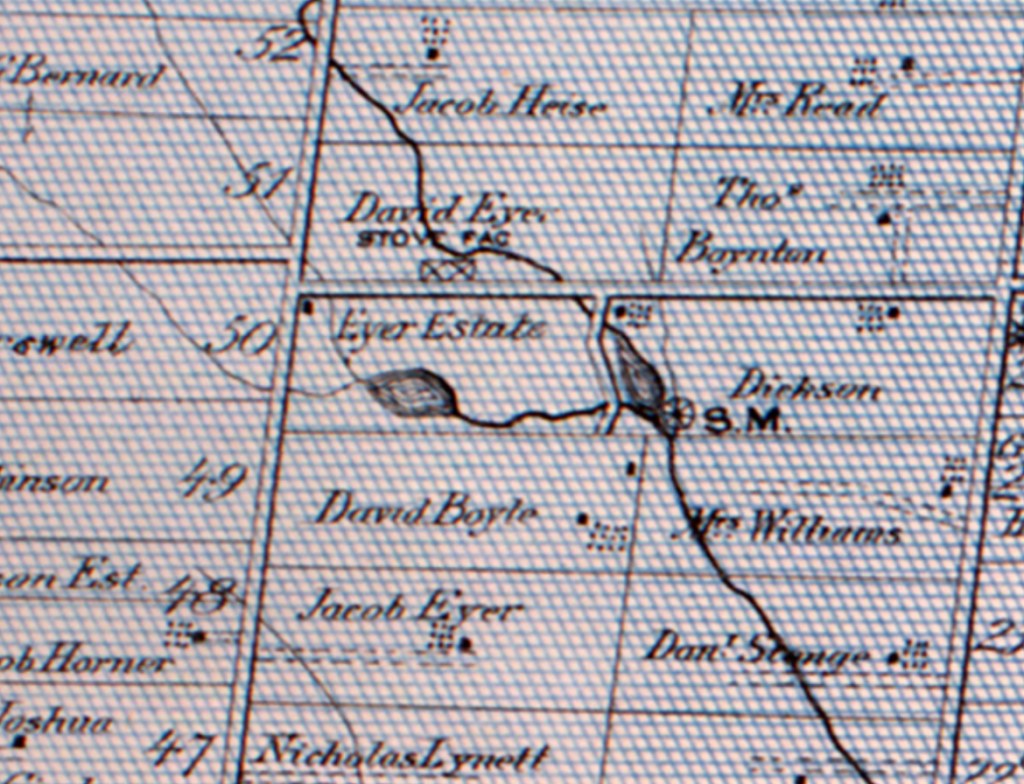 52
Bernard
Jacob Heise
Mrs Read
51
David Eyer
STOVE FAC
Thos
Boynton
50
Eyer Estate
Dickson
S.M.
49
David Boyle
Mrs Williams
Est.
48
Jacob Eyer
Horner
Danl Stonge
Joshua
47
Nicholas Lynett